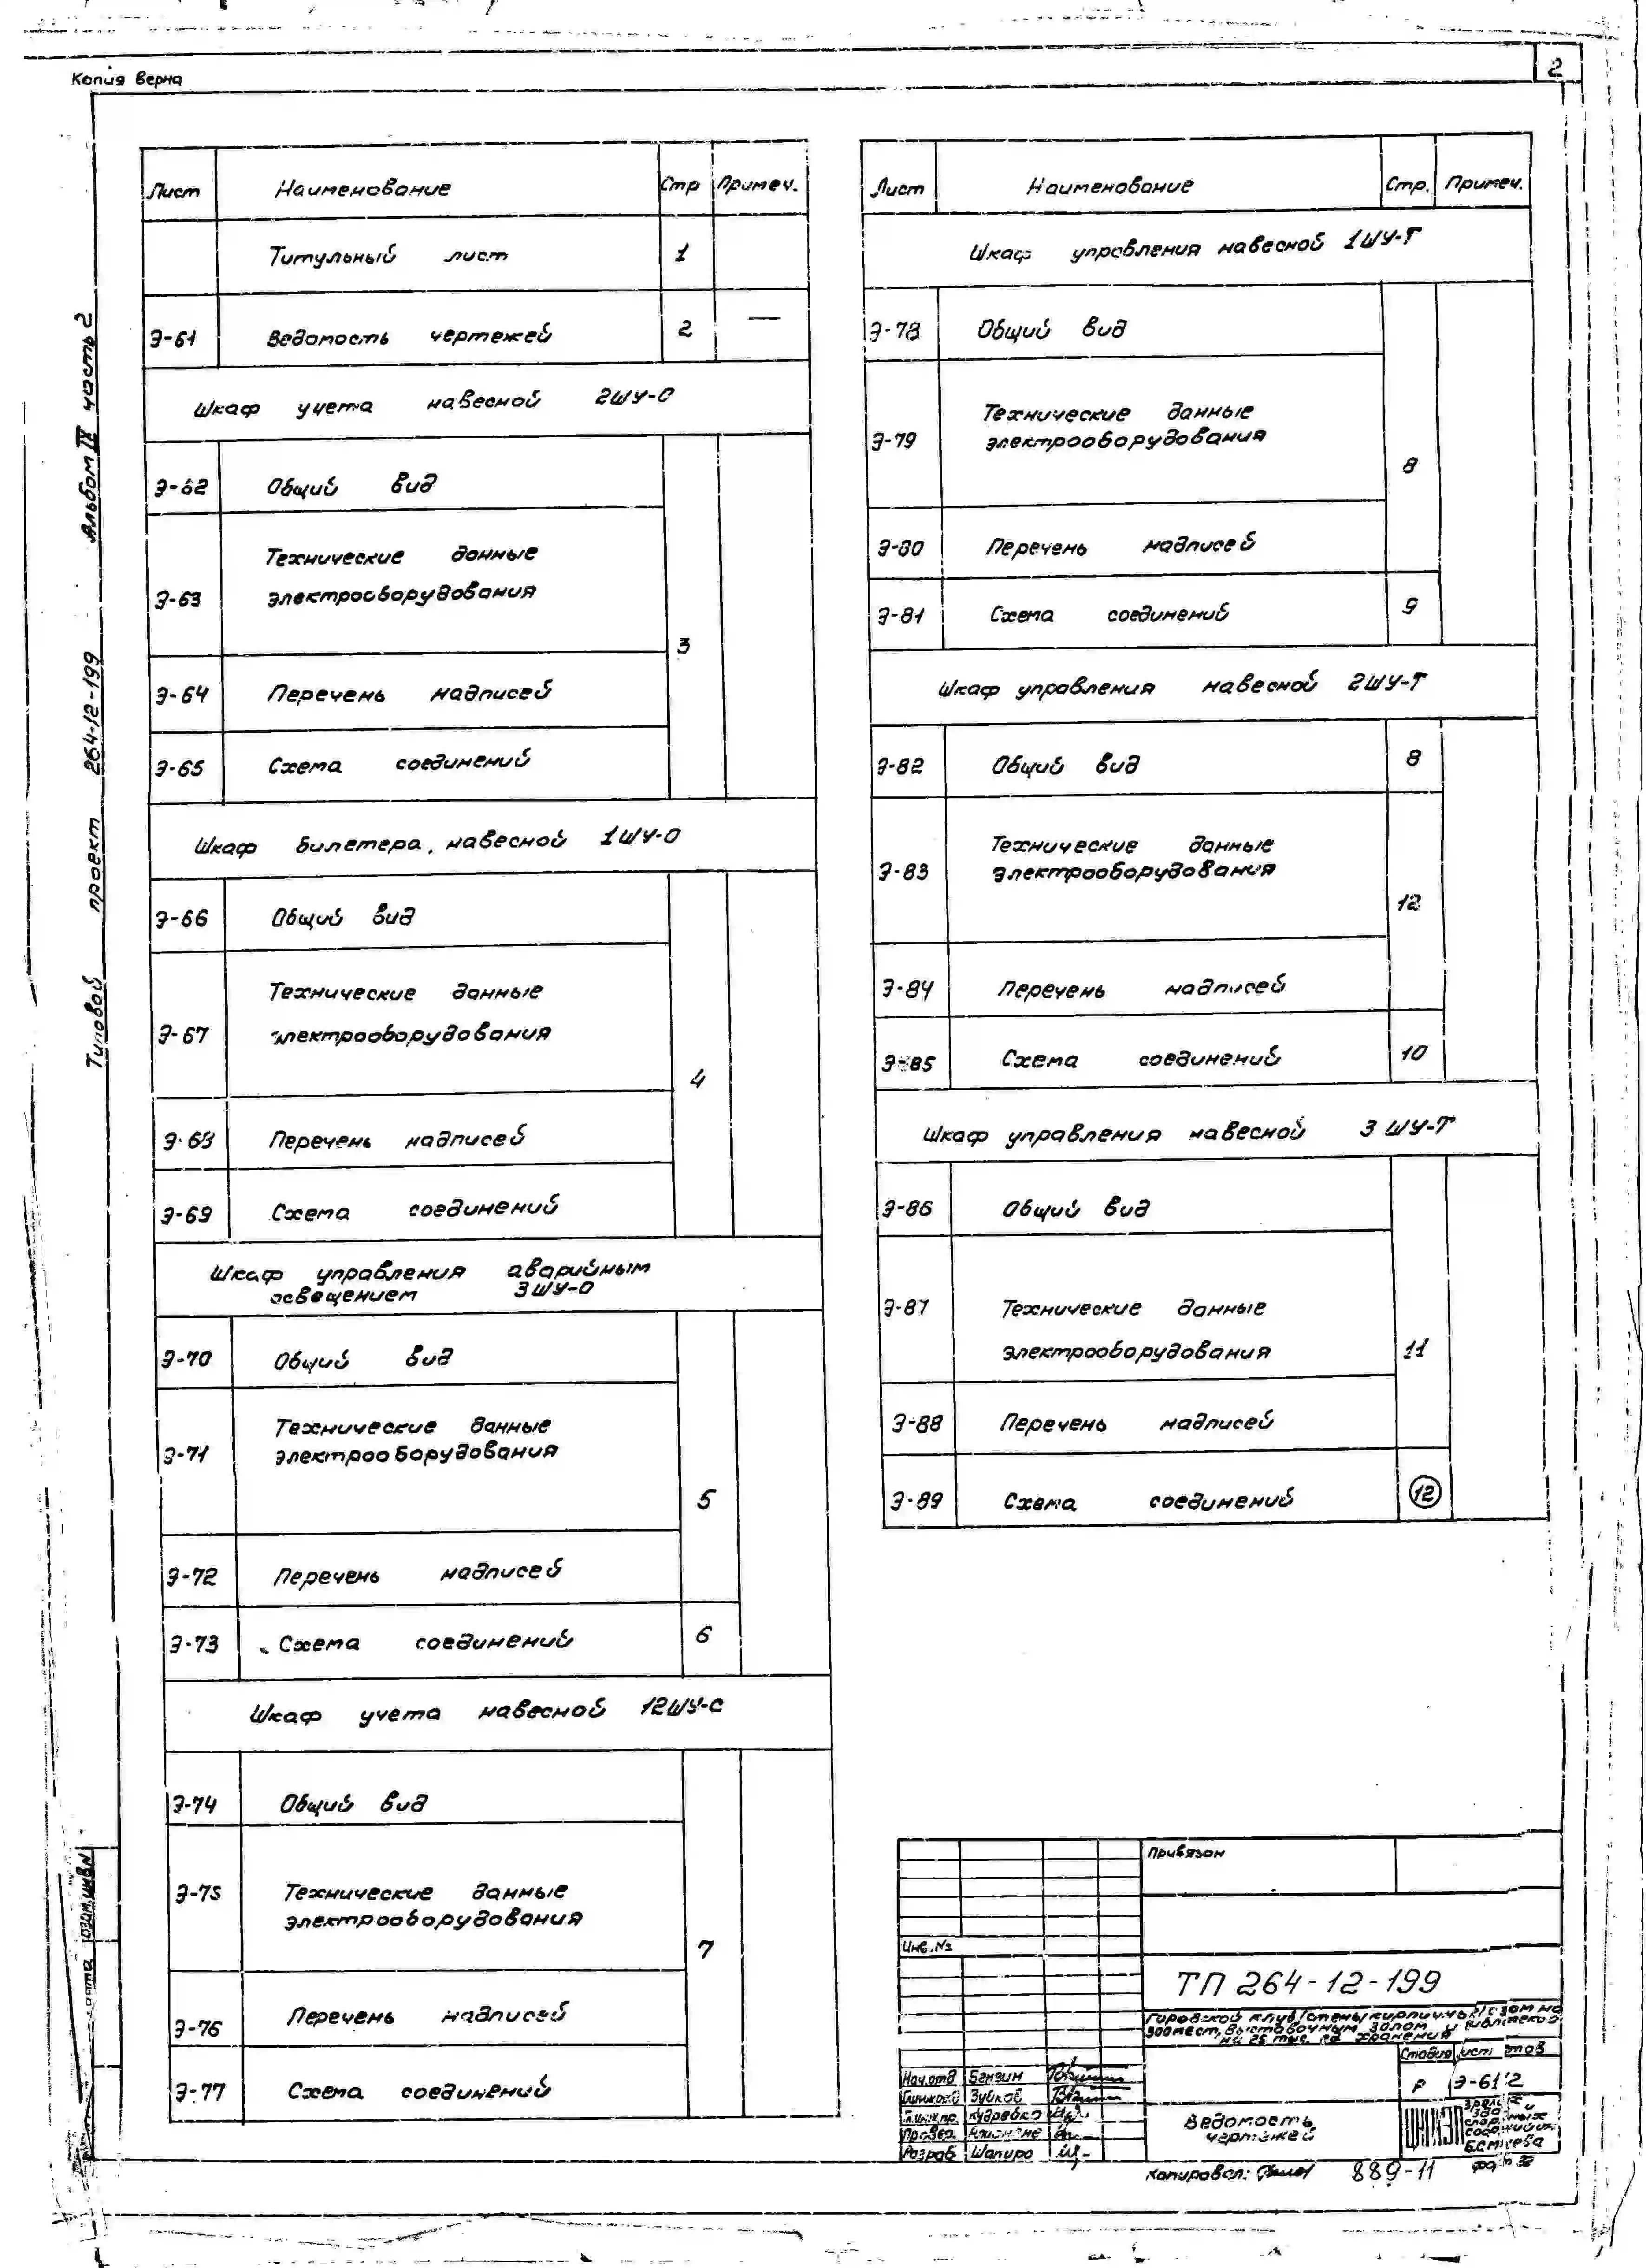 Копия верна
2
Типовой проект 264-12-199 Альбом IX часть 2
Лист Наименование Стр Примеч.
Титульный лист 1
Э-61 Ведомость чертежей 2 —
Шкаф учета навесной 2ШУ-О
Э-62 Общий вид
Э-63 Технические данные
электрооборудования
3
Э-64 Перечень надписей
Э-65 Схема соединений
Шкаф билетера, навесной 1ШУ-О
Э-66 Общий вид
Э-67 Технические данные
электрооборудования
4
Э-68 Перечень надписей
Э-69 Схема соединений
Шкаф управления аварийным
освещением 3ШУ-О
Э-70 Общий вид
Э-71 Технические данные
электрооборудования
5
Э-72 Перечень надписей
Э-73 Схема соединений 6
Шкаф учета навесной 12ШУ-С
Э-74 Общий вид
Э-75 Технические данные
электрооборудования
7
Э-76 Перечень надписей
Э-77 Схема соединений
Лист Наименование Стр. Примеч.
Шкаф управления навесной 1ШУ-Т
Э-78 Общий вид
Э-79 Технические данные
электрооборудования
8
Э-80 Перечень надписей
Э-81 Схема соединений 9
Шкаф управления навесной 2ШУ-Т
Э-82 Общий вид 8
Э-83 Технические данные
электрооборудования
12
Э-84 Перечень надписей
Э-85 Схема соединений 10
Шкаф управления навесной 3 ШУ-Т
Э-86 Общий вид
Э-87 Технические данные
электрооборудования
11
Э-88 Перечень надписей
Э-89 Схема соединений 12
Привязан
Инв. №
ТП 264-12-199
Городской клуб /стены кирпичны/ с зал на
300 мест, выставочным залом и библиотекой
на 25 тыс. хранения
Стадия
Р Э-61 2
Нач.отд Бензин
Зубков
Кудрявко
Провер.
Разраб Шапиро
Ведомость
чертежей
ЦНИИЭП
Б.С.Мезенцева
Копировал:
889-11
взам.инв N